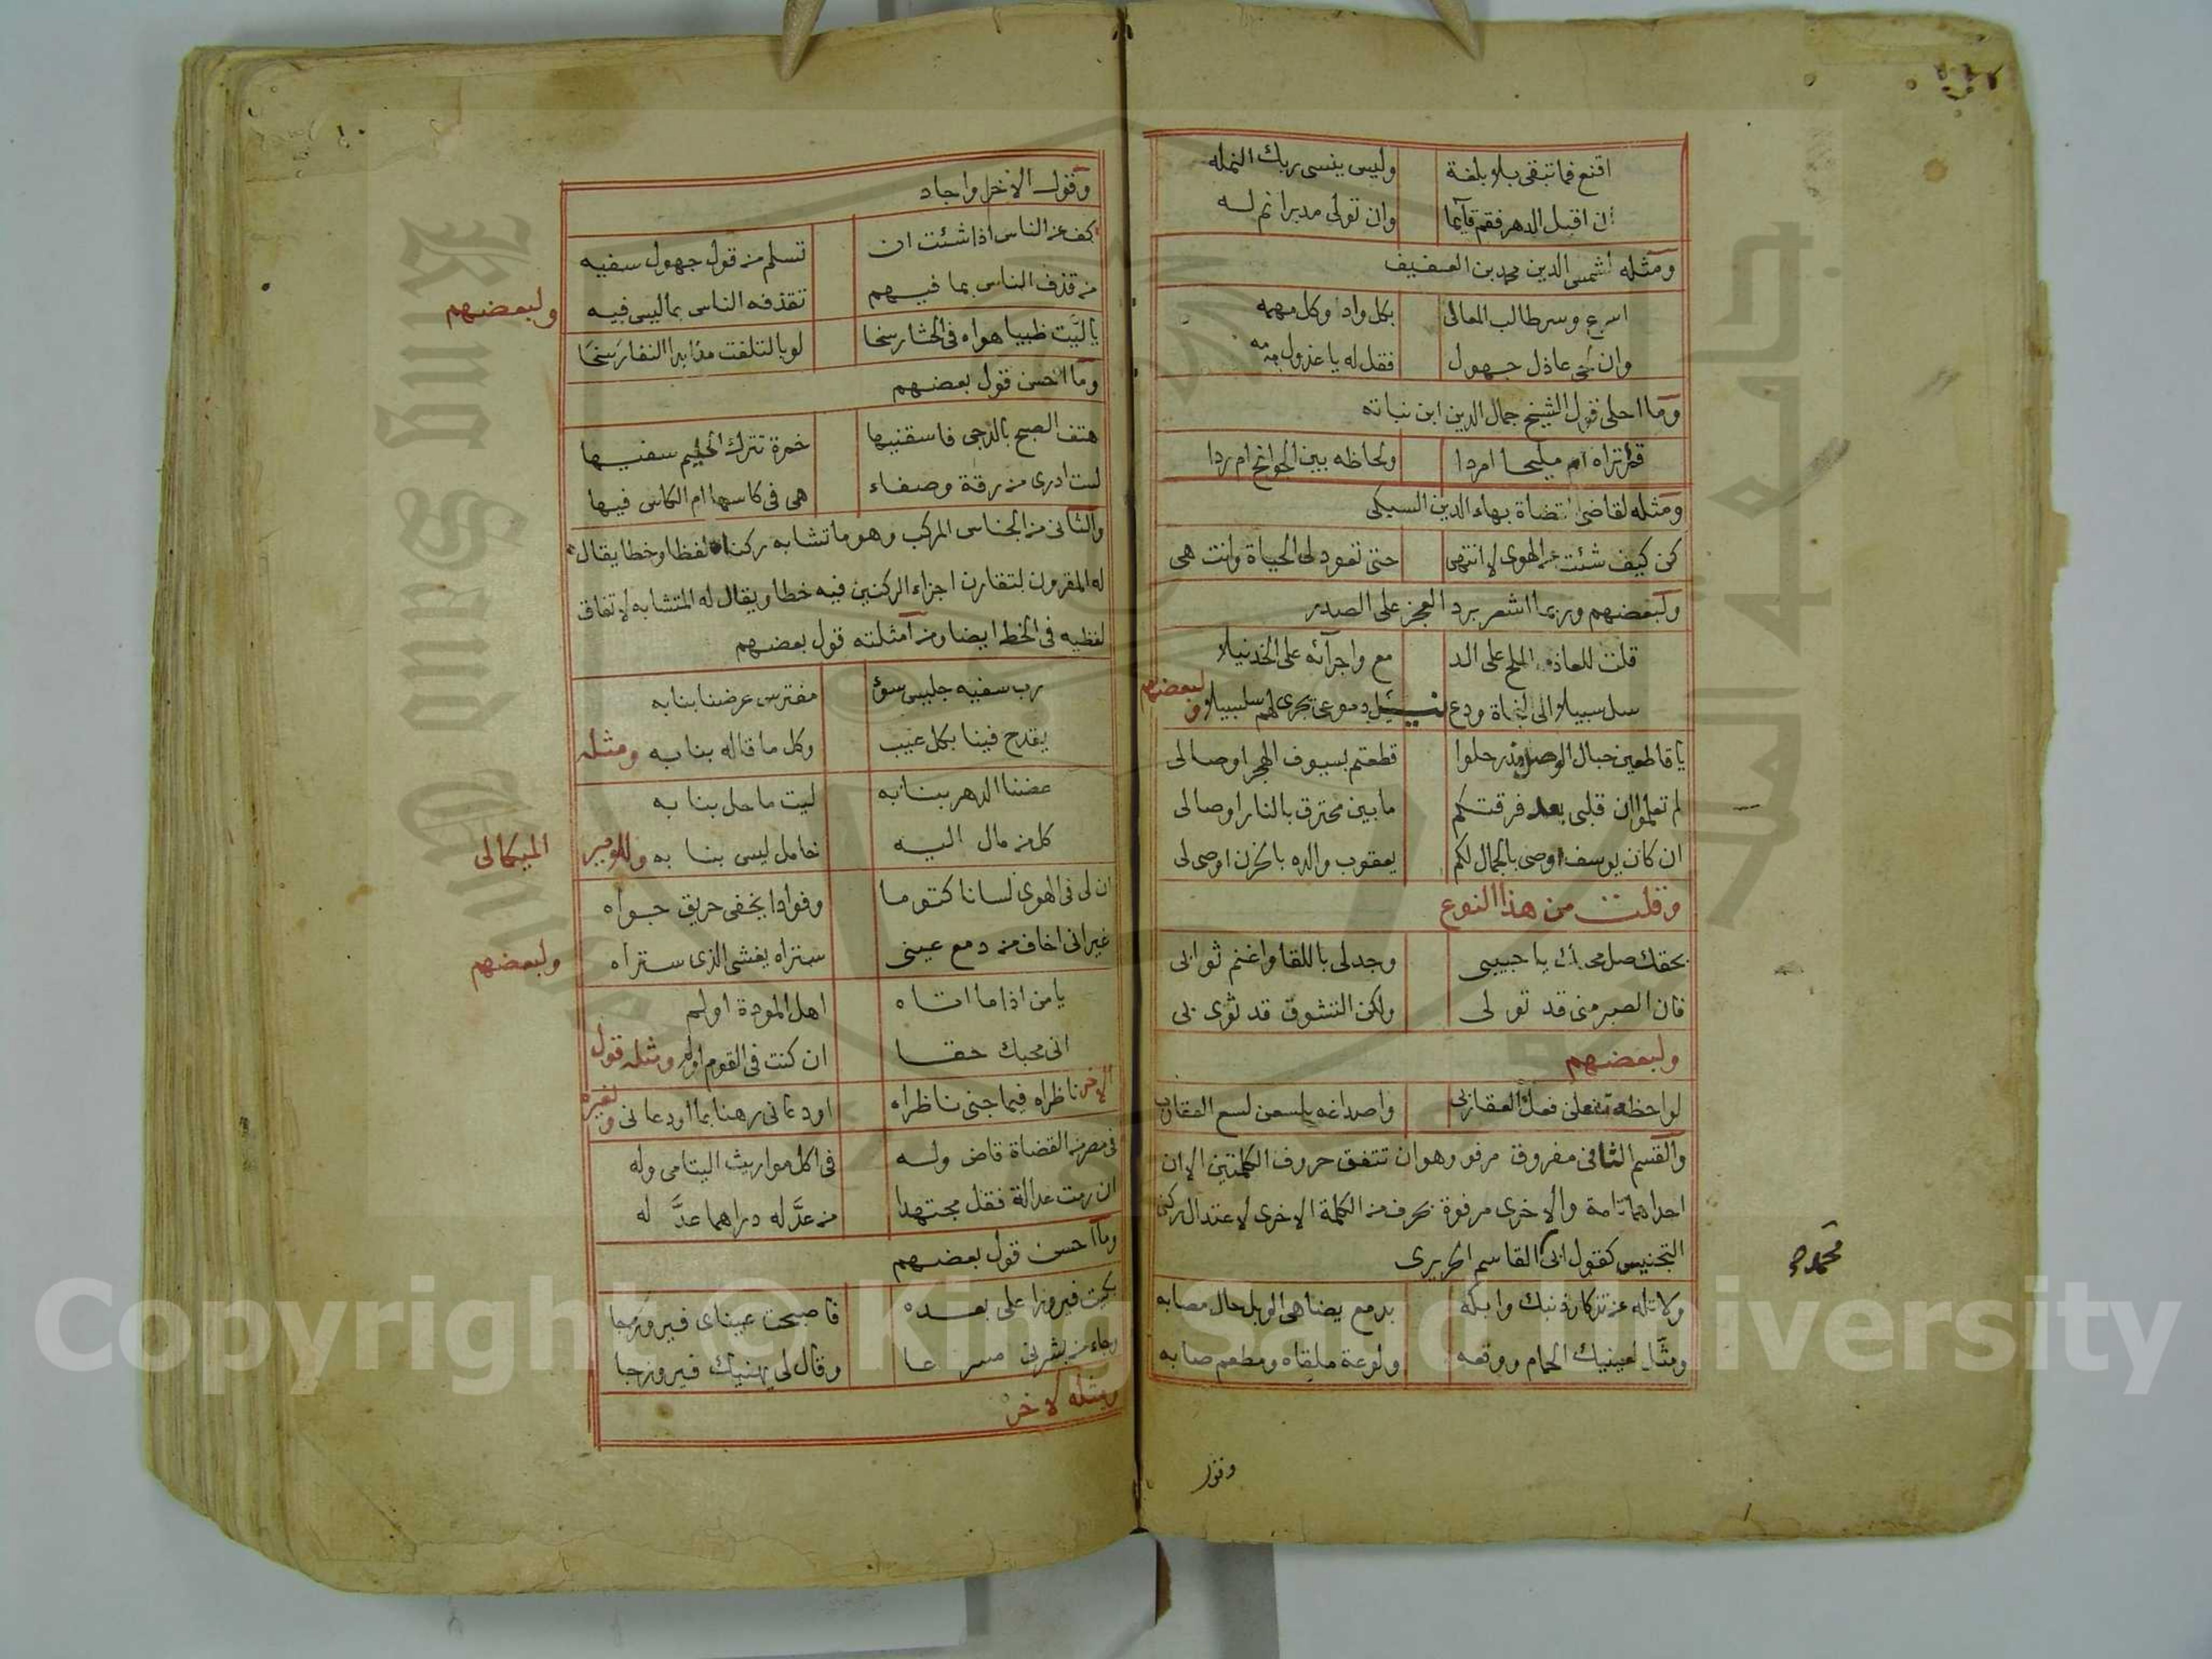 اقنع فما تبقى بلا بلغة وليس ينسى ربك النمله
ان اقبل الدهر فقم قائما وان تولى مدبرا نم له
ومثله لشمس الدين محمد بن العفيف
اسرع وسر طالب المعالى بكل واد وكل مهمه
وان لحى عاذل جهول فقل له يا عذول مه مه
وما احلى قول الشيخ جمال الدين ابن نباته
قمر تراه ام مليحا امردا ولحاظه بين الجوانح ام ردا
ومثله لقاضى القضاة بهاء الدين السبكى
كن كيف شئت عن الهوى لا انتهى حتى تعود لى الحياة وانت هى
ولبعضهم وربما اشعر برد العجز على الصدر
قلت للعاذل الملح على الد مع واجرآئه على الخد نيلا
سل سبيلا الى النجاة ودع دموعى تجرى لهم سلسبيلا ولبعضهم
يا قاطعين حبال الوصل مذ رحلوا قطعتم بسيوف الهجر اوصالى
لم تعلموا ان قلبى بعد فرقتكم ما بين محترق بالنار اوصالى
ان كان يوسف اوصى بالجمال لكم يعقوب والده بالحزن اوصى لى
وقلت من هذا النوع
بحقك صل محبك يا حبيبى وجد لى باللقا واغنم ثوابى
فان الصبر منى قد تولى ولكن التشوق قد ثوى بى
ولبعضهم
لواحظه تفعلن فعل العقاربى واصداغه يلسعن لسع العقارب
والقسم الثانى مفروق مرفو وهو ان تتفق حروف الكلمتين الا ان
احداهما تامة والاخرى مرفوة بحرف من الكلمة الاخرى لاعتدال ركنى
التجنيس كقول ابى القاسم الحريرى
ولا تله عن تذكار ذنبك وابكه بدمع يضاهى الوبل حال مصابه
ومثل لعينيك الحمام ووقعه ولوعة ملقاه ومطعم صابه
وقول
وقول الاخر واجاد
كف عن الناس اذا شئت ان تسلم من قول جهول سفيه
من قذف الناس بما فيهم تقذفه الناس بما ليس فيه ولبعضهم
يا ليت ظبيا هواه فى الحشا رسخا لو بالتلفت مذ ابدا النفار سخا
وما احسن قول بعضهم
هتف الصبح بالدجى فاسقنيها خمرة تترك الحليم سفيها
لست ادرى من رقة وصفاء هى فى كاسها ام الكاس فيها
والثانى من الجناس المركب وهو ما تشابه ركناه لفظا وخطا يقال
له المقرون لتقارن اجزاء الركنين فيه خطا ويقال له المتشابه لاتفاق
لفظيه فى الخط ايضا ومن امثلته قول بعضهم
رب سفيه جليس سوء مفترس عرضنا بنابه
يقدح فينا بكل عيب وكل ما قاله بنا به ومثله
عضنا الدهر بنابه ليت ما حل بنا به
كل من مال اليه خامل ليس بنا به وللامير الميكالى
ان لى فى الهوى لسانا كتوما وفوادا يخفى حريق جواه
غير انى اخاف من دمع عينى ستراه يفشى الذى ستراه ولبعضهم
يا من اذا ما اتاه اهل المودة اولم
انى محبك حقا ان كنت فى القوم اولم ومثله قول
الاخر ناظراه فيما جنى ناظراه اودعانى رهنا بما اودعانى ولغيره
فى مصر من القضاة قاض وله فى اكل مواريث اليتامى وله
ان رمت عدالة فقل مجتهدا من عدّ له دراهما عدّ له
وما احسن قول بعضهم
بكيت فيروزا على بعده فاصبحت عيناى فيروزجا
وجاء من بشرنى مسرعا وقال لى يهنيك فيروز جا
ومثله لاخر
Copyright © King Saud University